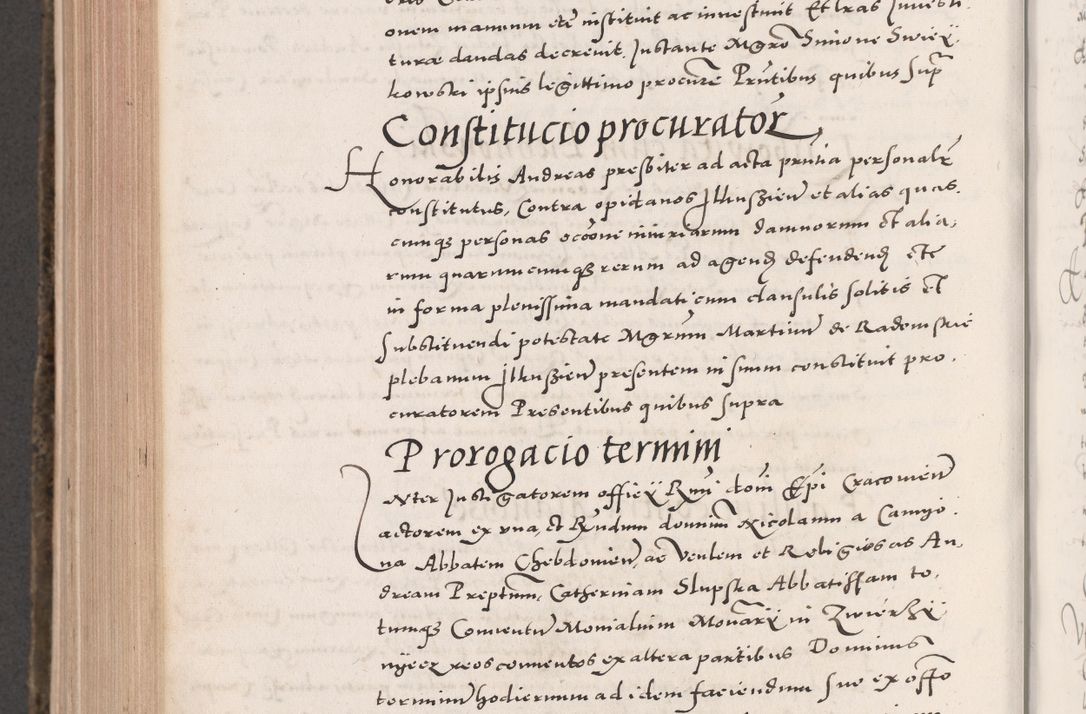 onem manuum etc instituit ac investivit Et lras Investi.
turæ dandas decrevit. Instante Mgro Simone Swiey.
kowski ipsius legittimo procure Prntibus quibus sup
Constitucio procurator
Honorabilis Andreas presbiter ad acta prntia personalr
constitutus, Contra opidanos Ilkuszien et alias quas.
cumq personas occone iniuriarum damnorum et alia,
rum quarumcumq rerum ad agend defendend etc
in forma plenissima mandati cum clausulis solitis et
substituendi potestate Mgrum Martinum de Radomskie
plebanum Ilkuszien presentem in suum constituit pro.
curatorem Presentibus quibus supra
Prorogacio termini
Inter Instigatorem officij Rmi domi Epi Cracovien
actorem ex una, et Rndum domnum Nicolaum a Camyo.
na Abbatem Chebdovien, ac Venlem et Religiosas An,
dream Preptum, Catherinam Slupska Abbatissam to,
tumq Conventum Monialium Monarij in Zwierzy,
nyecz reos conventos ex altera partibus Dominus
terminum hodiernum ad idem faciendum suo ex offo